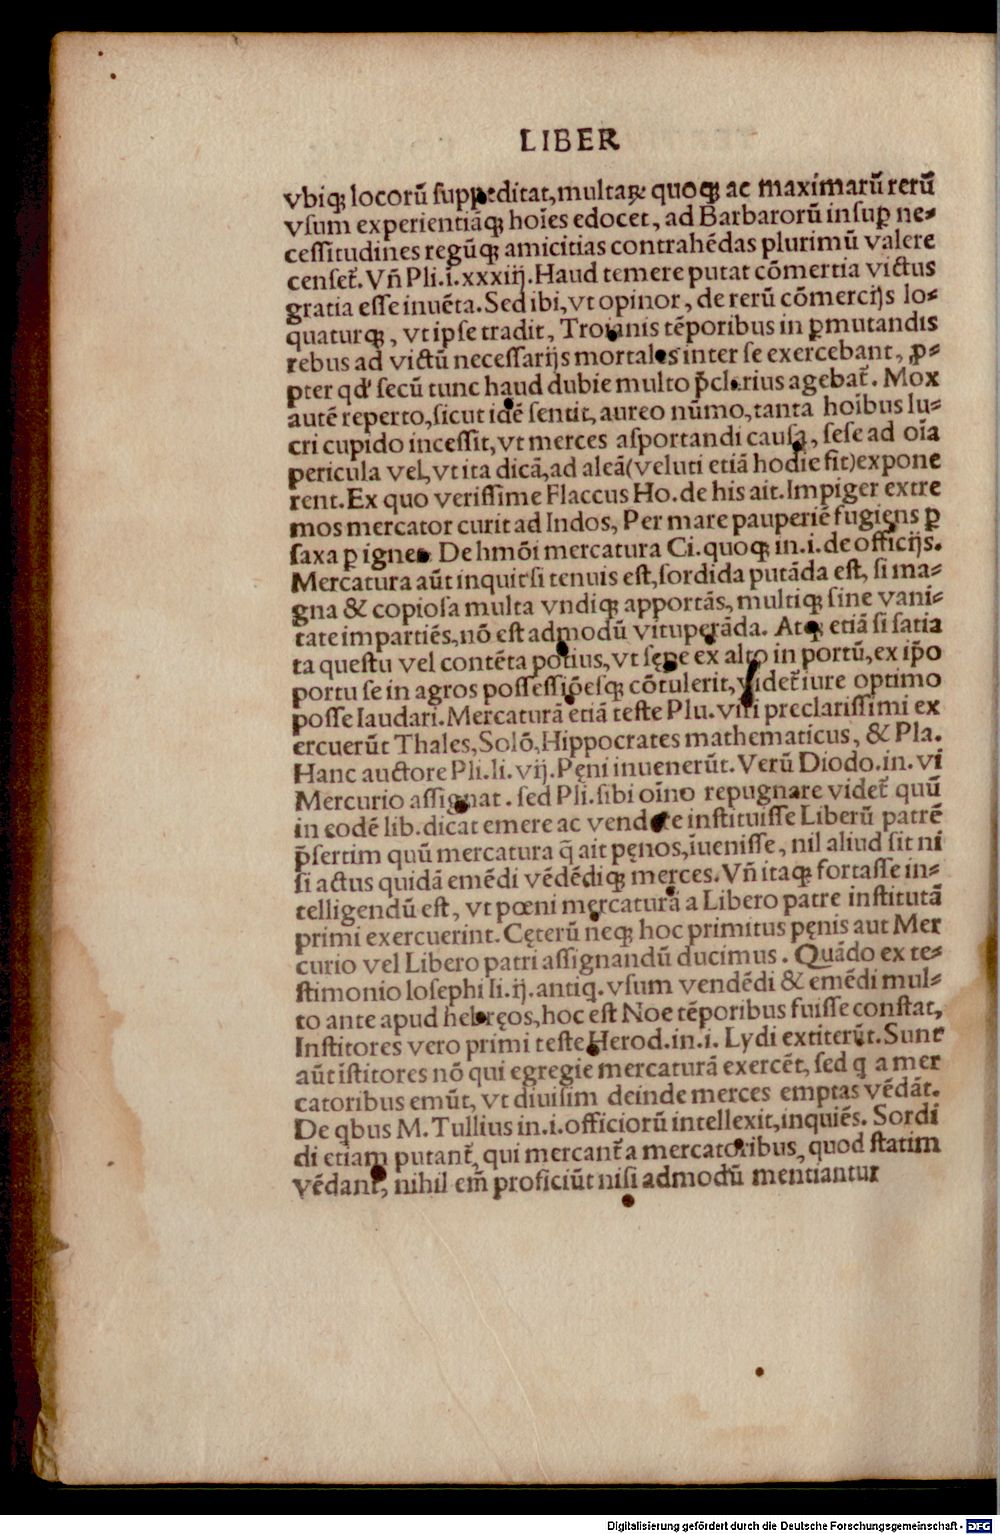 LIBER
vbiq; locorū suppeditat, multaꝝ quoq; ac maximarū rerū
vsum experientiāq; hoīes edocet, ad Barbarorū insuꝑ ne-
cessitudines regūq; amicitias contrahēdas plurimū valere
censet᷑. Vñ Pli.i.xxxiij. Haud temere putat cōmertia victus
gratia esse inuēta. Sed ibi, vt opinor, de rerū cōmercijs lo-
quaturq;, vt ipse tradit, Troianis tēporibus in ꝑmutandis
rebus ad victū necessarijs mortales inter se exercebant, ꝓ-
pter qd' secū tunc haud dubie multo p̄clarius agebat᷑. Mox
autē reperto, sicut idē sentit, aureo nūmo, tanta hoībus lu-
cri cupido incessit, vt merces asportandi causa, sese ad oīa
pericula vel, vt ita dicā, ad aleā (veluti etiā hodie fit) expone
rent. Ex quo verissime Flaccus Ho. de his ait. Impiger extre
mos mercator curit ad Indos, Per mare pauperiē fugiens ꝑ
saxa ꝑ ignes. De hmōi mercatura Ci. quoq; in.i. de officijs.
Mercatura aūt inquit si tenuis est, sordida putāda est, si ma-
gna & copiosa multa vndiq; apportās, multiq; sine vani-
tate impartiēs, nō est admodū vituperāda. Atq; etiā si satia
ta questu vel contēta potius, vt sępe ex alto in portū, ex ip̄o
portu se in agros possessiōesq; cōtulerit, videt᷑ iure optimo
posse laudari. Mercaturā etiā teste Plu. viri preclarissimi ex
ercuerūt Thales, Solō, Hippocrates mathematicus, & Pla.
Hanc auctore Pli. li. vij. Pęni inuenerūt. Verū Diodo. in. vi
Mercurio assignat. sed Pli. sibi oīno repugnare videt᷑ quū
in eodē lib. dicat emere ac vendere instituisse Liberū patrē
p̄sertim quū mercatura q̄ ait pęnos, īuenisse, nil aliud sit ni
si actus quidā emēdi vēdēdiq; merces. Vñ itaq; fortasse in-
telligendū est, vt pœni mercaturā a Libero patre institutā
primi exercuerint. Cęterū neq; hoc primitus pęnis aut Mer
curio vel Libero patri assignandū ducimus. Quādo ex te-
stimonio Iosephi li. ij. antiq. vsum vendēdi & emēdi mul-
to ante apud hebręos, hoc est Noe tēporibus fuisse constat,
Institores vero primi teste Herod. in. i. Lydi extiterūt. Sunt
aūt īstitores nō qui egregie mercaturā exercēt, sed q a mer
catoribus emūt, vt diuisim deinde merces emptas vēdāt.
De qbus M. Tullius in. i. officiorū intellexit, inquiēs. Sordi
di etiam putant᷑, qui mercant᷑ a mercatoribus, quod statim
vēdant, nihil em̄ proficiūt nisi admodū mentiantur
Digitalisierung gefördert durch die Deutsche Forschungsgemeinschaft - DFG